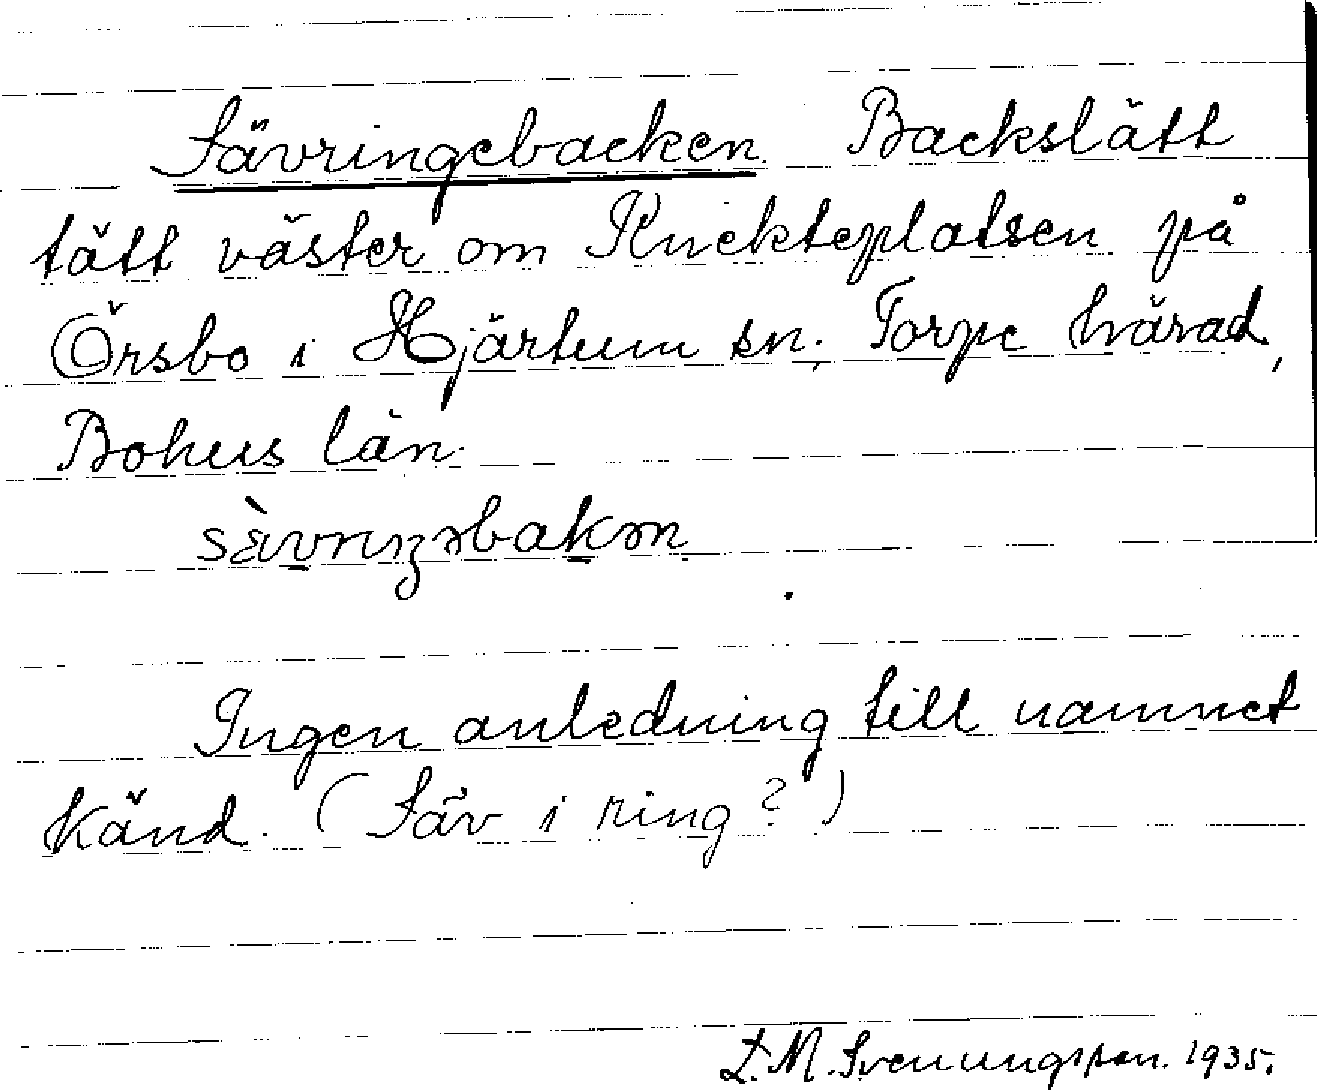 Sävringebacken. Backslätt
tätt väster om Knekteplatsen på
Örsbo i Hjärtum sn; Torpe härad,
Bohus län.
sävriŋəbakən
Ingen anledning till namnet
känd. (Säv i ring?)
L. M. Svenungsson. 1935.